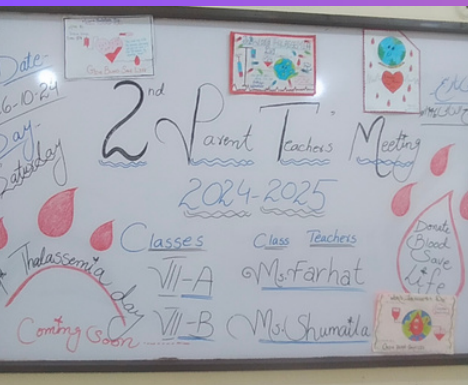 Date-
6-10-24
Day-
Saturday
2nd Parent Teachers' Meeting
2024-2025
Classes
Class Teachers
VII-A
Ms. Farhat
VII-B
Ms. Shumaila
Thalassemia day
Coming Soon
Donate
Blood
Save
Life